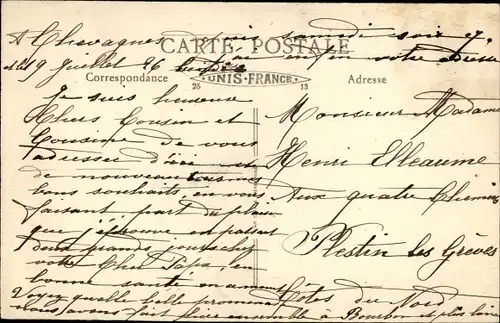 A Chevagnes depuis samedi soir 17
et le 19 Juillet 26
CARTE POSTALE
enfin votre
Correspondance
UNIS-FRANCE
Adresse
25
13
Je suis heureuse
Chers Cousin et
Cousine de vous
adresser d'ici et
de nouveau tous mes
bons souhaits en vous
faisant part du plaisir
que j'éprouve en passant
deux grands jours chez
votre Cher Papa, en
bonne santé
Voyez quelle belle promenade
nous avons fait faire ensemble à Bourbon et plus loin
Monsieur Madame
Henri Elleaume
Aux quatre Chemins
Plestin les Grèves
Côtes du Nord